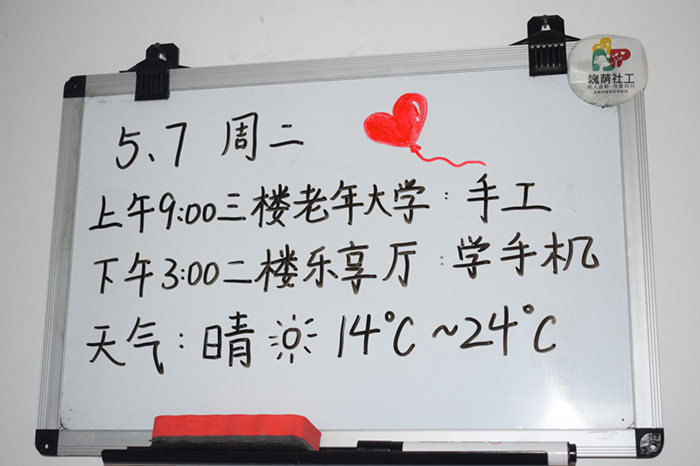 槐荫社工
5、7 周二
上午9:00三楼老年大学：手工
下午3:00二楼乐享厅：学手机
天气：晴 14°C~24°C